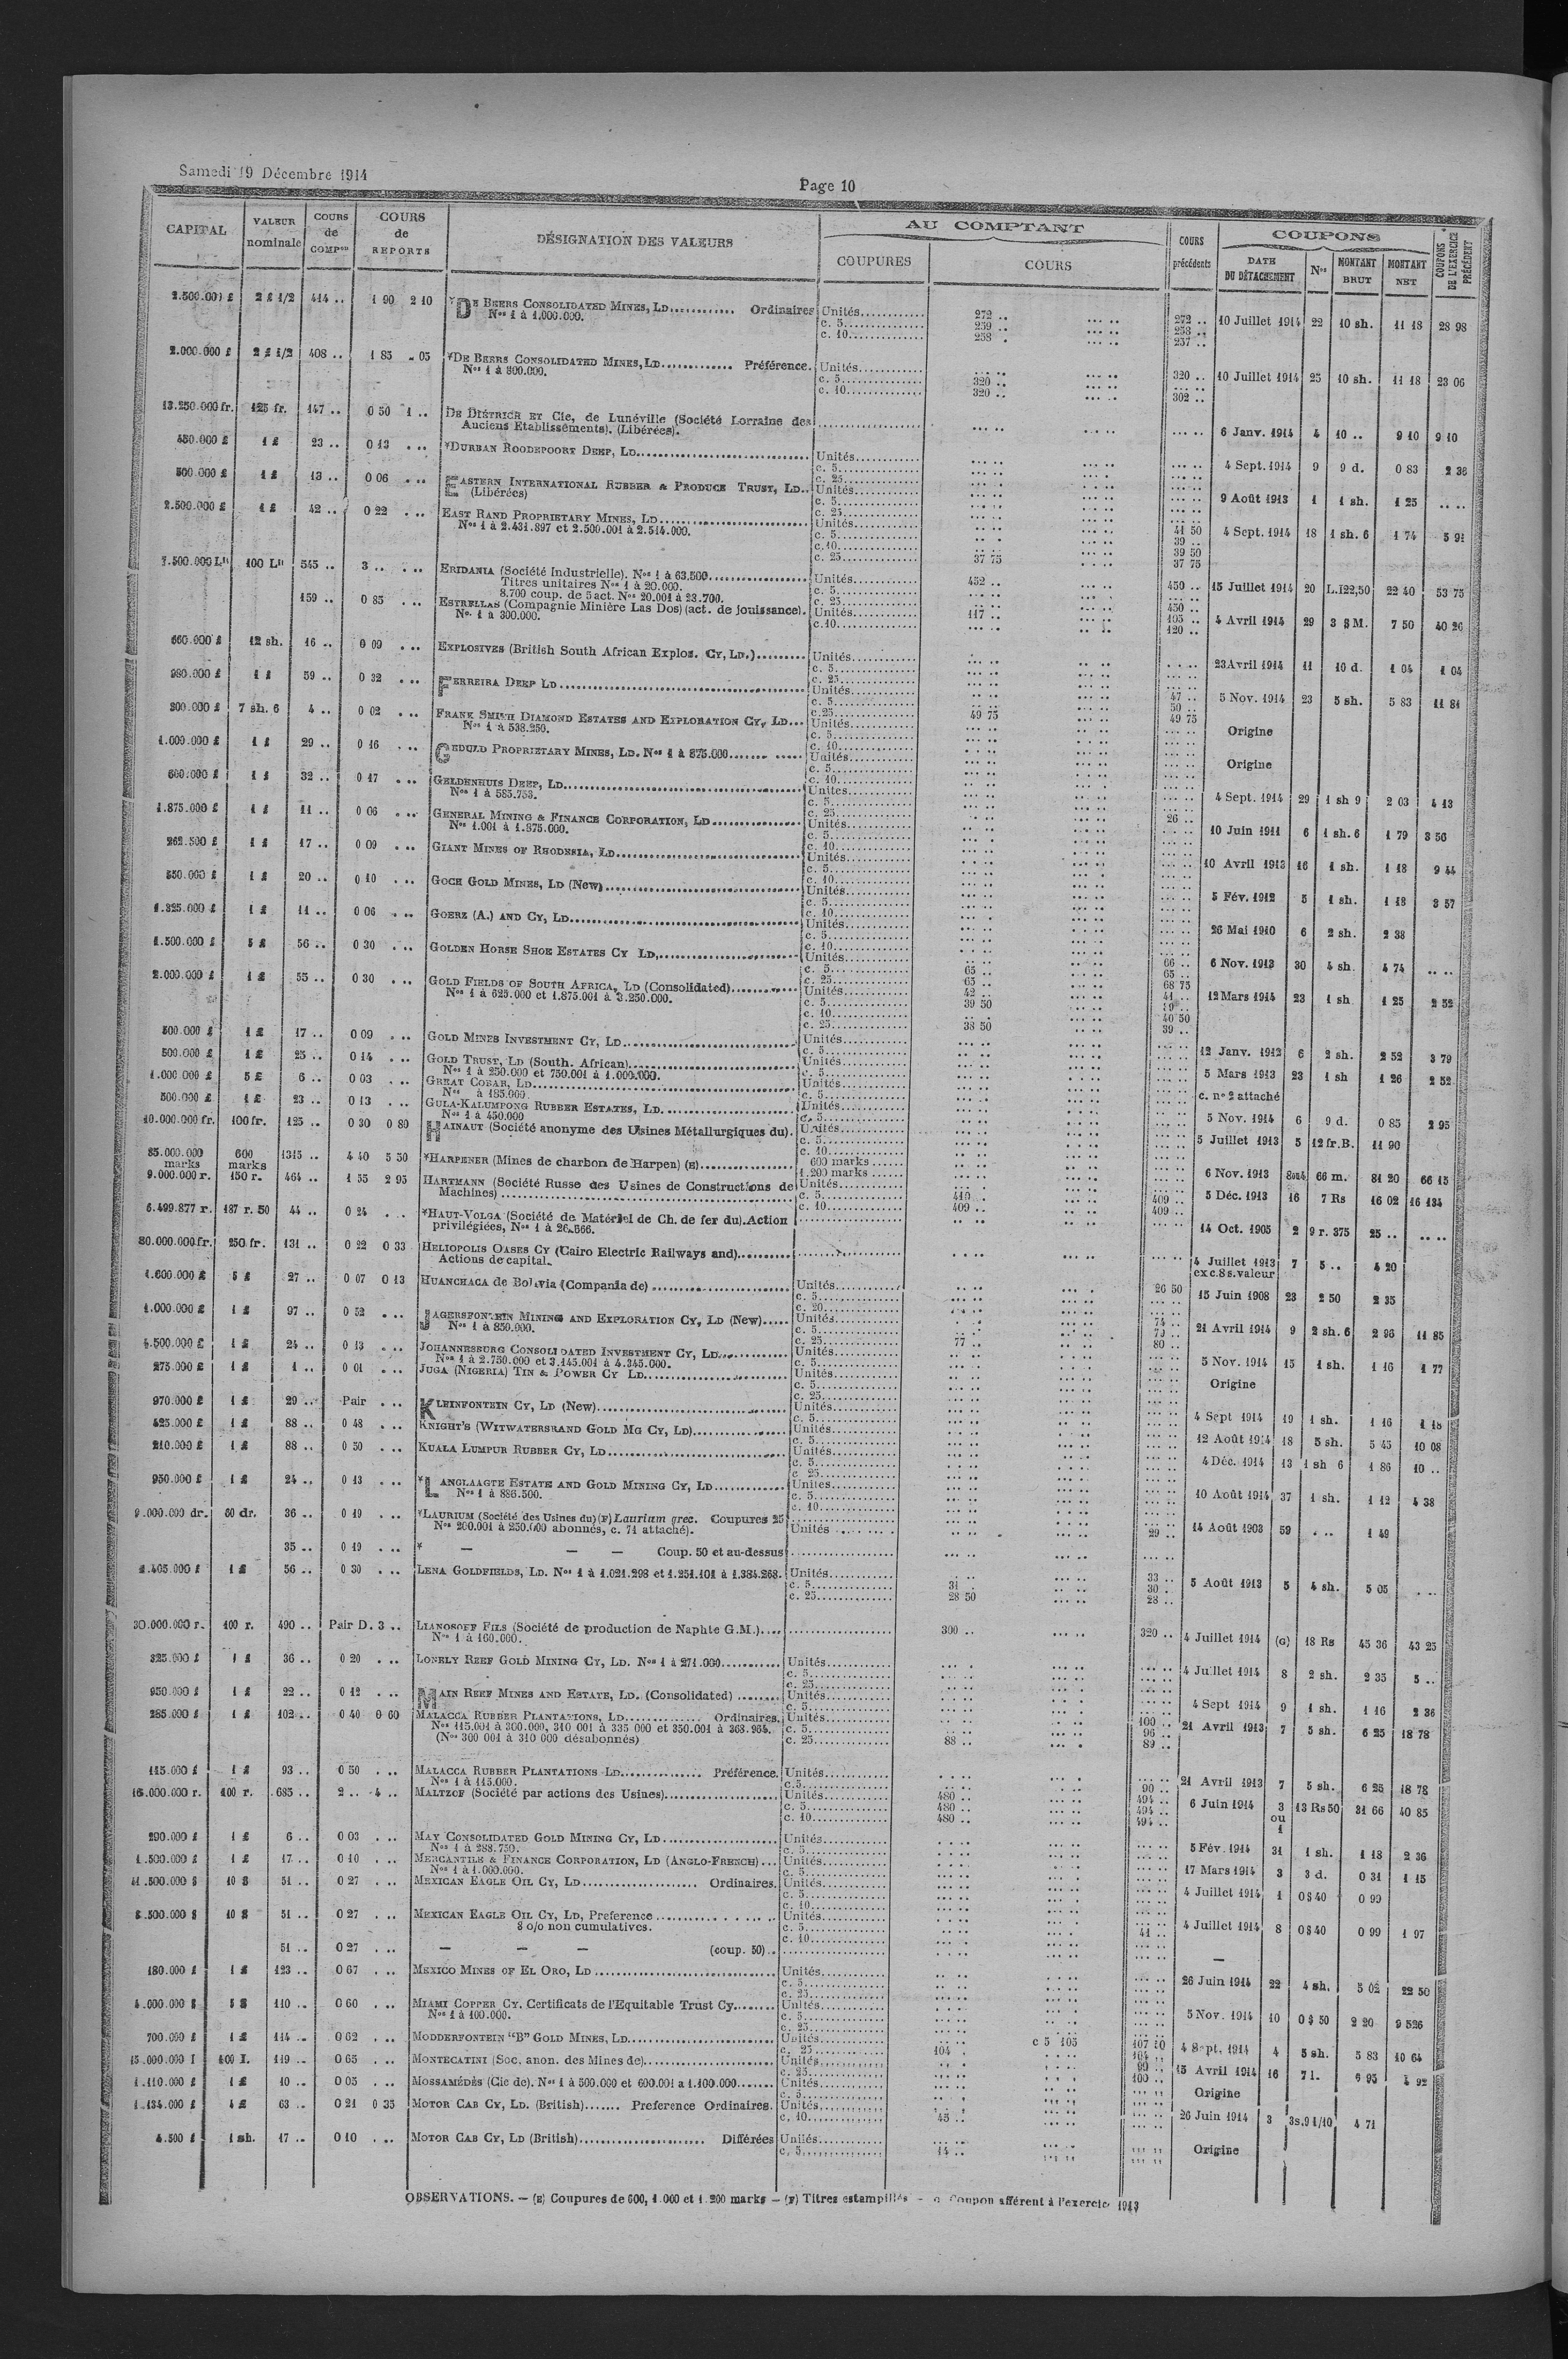 Samedi 19 Décembre 1914
Page 10
CAPITAL
VALEUR nominale
COURS de COMPon
COURS de REPORTS
DÉSIGNATION DES VALEURS
AU COMPTANT
COUPURES
COURS
COURS précédents
COUPONS
DATE DU DÉTACHEMENT
Nos
MONTANT BRUT
MONTANT NET
COUPONS DE L'EXERCICE PRÉCÉDENT
2.500.000 £ 2 £ 1/2 414 .. 1 90 2 10 *DE BEERS CONSOLIDATED MINES, LD............ Ordinaires Unités............ 272 .. 272 .. 10 Juillet 1914 22 10 sh. 11 18 28 98
Nos 1 à 1.000.000. c. 5............ 259 .. 258 ..
c. 10............ 258 . 257 ..
2.000.000 £ 2 £ 1/2 408 .. 1 85 *DE BEERS CONSOLIDATED MINES, LD............ Préférence. Unités............ 320 .. 10 Juillet 1914 25 10 sh. 11 18 23 06
Nos 1 à 800.000. c. 5............ 320 ..
c. 10............ 320 .. 302 ..
13.250.000 fr. 125 fr. 147 .. 0 50 1 .. DE DIÉTRICH ET Cie, de Lunéville (Société Lorraine des 6 Janv. 1914 4 10 .. 9 10 9 10
Anciens Etablissements). (Libérées).
450.000 £ 1 £ 23 .. 0 13 *DURBAN ROODEPOORT DEEP, LD............ Unités............ 4 Sept. 1914 9 9 d. 0 83 2 36
c. 5............
c. 25............
500.000 £ 1 £ 13 .. 0 06 EASTERN INTERNATIONAL RUBBER & PRODUCE TRUST, LD.. Unités............ 9 Août 1913 1 1 sh. 1 25
(Libérées) c. 5............
c. 25............
2.500.000 £ 1 £ 42 .. 0 22 EAST RAND PROPRIETARY MINES, LD............ Unités............ 41 50 4 Sept. 1914 18 1 sh. 6 1 74 5 91
Nos 1 à 2.431.897 et 2.500.001 à 2.514.000. c. 5............ 39 ..
c. 10............ 39 50
c. 25............ 37 75 37 75
7.500.000 Lit 100 Lit 545 .. 3 .. ERIDANIA (Société Industrielle). Nos 1 à 63.500............ Unités............ 452 .. 450 .. 15 Juillet 1914 20 L.122,50 22 40 53 75
Titres unitaires Nos 1 à 20.000. c. 5............
8.700 coup. de 5 act. Nos 20.001 à 23.700. c. 25............ 450 ..
159 .. 0 85 ESTRELLAS (Compagnie Minière Las Dos) (act. de jouissance). Unités............ 117 .. 105 .. 4 Avril 1914 29 3 $ M. 7 50 40 26
Nos 1 à 300.000. c. 10............ 120 ..
660.000 £ 12 sh. 16 .. 0 09 EXPLOSIVES (British South African Explos. CY, LD.)......... Unités............ 23 Avril 1914 11 10 d. 1 04 1 04
c. 5............
c. 25............
980.000 £ 1 £ 59 .. 0 32 FERREIRA DEEP LD............ Unités............ 47 .. 5 Nov. 1914 23 5 sh. 5 83 11 81
c. 5............ 50 ..
c. 25............ 49 75 49 75
300.000 £ 7 sh. 6 4 .. 0 02 FRANK SMITH DIAMOND ESTATES AND EXPLORATION CY, LD... Unités............ Origine
Nos 1 à 538.250. c. 5............
c. 10............
1.000.000 £ 1 £ 29 .. 0 16 GEDULD PROPRIETARY MINES, LD. Nos 1 à 875.000............ Unités............ Origine
c. 5............
c. 10............
600.000 £ 1 £ 32 .. 0 17 GELDENHUIS DEEP, LD............ Unités............ 4 Sept. 1914 29 1 sh 9 2 03 4 13
Nos 1 à 585.753. c. 5............
c. 25............ 26 ..
1.875.000 £ 1 £ 11 .. 0 06 GENERAL MINING & FINANCE CORPORATION, LD............ Unités............ 10 Juin 1911 6 1 sh. 6 1 79 3 56
Nos 1.001 à 1.875.000. c. 5............
c. 10............
262.500 £ 1 £ 17 .. 0 09 GIANT MINES OF RHODESIA, LD............ Unités............ 10 Avril 1913 16 1 sh. 1 18 9 44
c. 5............
c. 10............
550.000 £ 1 £ 20 .. 0 10 GOCH GOLD MINES, LD (New)............ Unités............ 5 Fév. 1912 5 1 sh. 1 18 3 57
c. 5............
c. 10............
1.325.000 £ 1 £ 11 .. 0 06 GOERZ (A.) AND CY, LD............ Unités............ 26 Mai 1910 6 2 sh. 2 38
c. 5............
c. 10............
1.500.000 £ 5 £ 56 .. 0 30 GOLDEN HORSE SHOE ESTATES CY LD,............ Unités............ 66 .. 6 Nov. 1913 30 4 sh. 4 74
c. 5............ 65 .. 65 ..
c. 25............ 65 .. 68 75
2.000.000 £ 1 £ 55 .. 0 30 GOLD FIELDS OF SOUTH AFRICA, LD (Consolidated)............ Unités............ 42 .. 41 .. 12 Mars 1914 23 1 sh 1 25 2 52
Nos 1 à 625.000 et 1.875.001 à 3.250.000. c. 5............ 39 50
c. 10............ 40 50
c. 25............ 38 50 39 ..
500.000 £ 1 £ 17 .. 0 09 GOLD MINES INVESTMENT CY, LD............ Unités............ 12 Janv. 1912 6 2 sh. 2 52 3 79
c. 5............
500.000 £ 1 £ 25 .. 0 14 GOLD TRUST, LD (South. African)............ Unités............ 5 Mars 1913 23 1 sh 1 26 2 52
Nos 1 à 250.000 et 750.001 à 1.000.000. c. 5............
1.000.000 £ 5 £ 6 .. 0 03 GREAT COBAR, LD............ Unités............ c. no 2 attaché
Nos à 185.000. c. 5............
500.000 £ 1 £ 23 .. 0 13 GULA-KALUMPONG RUBBER ESTATES, LD............ Unités............ 5 Nov. 1914 6 9 d. 0 85 2 95
Nos 1 à 450.000 c. 5............
10.000.000 fr. 100 fr. 125 .. 0 30 0 80 HAINAUT (Société anonyme des Usines Métallurgiques du). Unités............ 5 Juillet 1913 5 12 fr.B. 11 90
c. 5............
c. 10............
85.000.000 marks 600 marks 1315 .. 4 40 5 50 *HARPENER (Mines de charbon de Harpen) (E)............ 600 marks ...... 6 Nov. 1913 66 m. 81 20 66 15
1.200 marks ......
9.000.000 r. 150 r. 464 .. 1 55 2 95 HARTMANN (Société Russe des Usines de Constructions de Unités............ 5 Déc. 1913 16 7 Rs 16 02
Machines)............ c. 5............ 410 .. 409 ..
c. 10............ 409 .. 409 ..
6.499.877 r. 187 r. 50 44 .. 0 24 *HAUT-VOLGA (Société de Matériel de Ch. de fer du). Action 14 Oct. 1905 2 9 r. 375 25 ..
privilégiées, Nos 1 à 26.666.
80.000.000 fr. 250 fr. 131 .. 0 22 0 33 HELIOPOLIS OASES CY (Cairo Electric Railways and)............ 4 Juillet 1913 7 5 .. 4 20
Actions de capital. ex c. 8 s. valeur
1.600.000 £ 5 £ 27 .. 0 07 0 13 HUANCHACA de Bolivia (Compania de)............ Unités............ 26 50 15 Juin 1908 23 2 50 2 35
c. 5............
c. 20............
1.000.000 £ 1 £ 97 .. 0 52 JAGERSFONTEIN MINING AND EXPLORATION CY, LD (New)..... Unités............ 74 .. 21 Avril 1914 9 2 sh. 6 2 96 11 85
Nos 1 à 850.000. c. 5............ 79 ..
c. 25............ 77 .. 80 ..
4.500.000 £ 1 £ 24 .. 0 13 JOHANNESBURG CONSOLIDATED INVESTMENT CY, LD............ Unités............ 5 Nov. 1914 15 1 sh. 1 16 1 77
Nos 1 à 2.750.000 et 3.145.001 à 4.345.000. c. 5............
275.000 £ 1 £ 1 .. 0 01 JUGA (NIGERIA) TIN & POWER CY LD............ Unités............ Origine
c. 5............
c. 25............
970.000 £ 1 £ 29 .. Pair KLEINFONTEIN CY, LD (New)............ Unités............ 4 Sept 1914 19 1 sh. 1 16 1 18
c. 5............
425.000 £ 1 £ 88 .. 0 48 KNIGHT'S (WITWATERSRAND GOLD MG CY, LD)............ Unités............ 12 Août 1914 18 5 sh. 5 45 10 08
c. 5............
210.000 £ 1 £ 88 .. 0 50 KUALA LUMPUR RUBBER CY, LD............ Unités............ 4 Déc. 1914 13 1 sh 6 1 86 10 ..
c. 5............
c. 25............
950.000 £ 1 £ 24 .. 0 13 *LANGLAAGTE ESTATE AND GOLD MINING CY, LD............ Unités............ 10 Août 1914 37 1 sh. 1 12 4 38
Nos 1 à 886.500. c. 5............
c. 10............
9.000.000 dr. 60 dr. 36 .. 0 19 *LAURIUM (Société des Usines du) (F) Laurium grec. Coupures 25 14 Août 1903 59 1 49
Nos 200.001 à 250.000 abonnés, c. 71 attaché). Unités ............ 29 ..
35 .. 0 19 * — — — Coup. 50 et au-dessus
1.405.000 £ 1 £ 56 .. 0 30 LENA GOLDFIELDS, LD. Nos 1 à 1.021.298 et 1.251.101 à 1.384.268. Unités............ 33 .. 5 Août 1913 5 4 sh. 5 05
c. 5............ 31 . 30 ..
c. 25............ 28 50 28 ..
30.000.000 r. 100 r. 490 .. Pair D. 3 .. LIANOSOFF FILS (Société de production de Naphte G.M.).... 300 .. 320 .. 4 Juillet 1914 (G) 18 Rs 45 36 43 25
Nos 1 à 160.000.
325.000 £ 1 £ 36 .. 0 20 LONELY REEF GOLD MINING CY, LD. Nos 1 à 271.000............ Unités............ 4 Juillet 1914 8 2 sh. 2 35 5 ..
c. 5............
c. 25............
950.000 £ 1 £ 22 .. 0 12 MAIN REEF MINES AND ESTATE, LD. (Consolidated) ......... Unités............ 4 Sept 1914 9 1 sh. 1 16 2 36
c. 5............
285.000 £ 1 £ 102 .. 0 40 0 60 MALACCA RUBBER PLANTATIONS, LD............ Ordinaires. Unités............ 100 .. 21 Avril 1913 7 5 sh. 6 25 18 78
Nos 115.001 à 300.000, 310 001 à 335 000 et 350.001 à 368.964. c. 5............ 96 ..
(Nos 300 001 à 310 000 désabonnés) c. 25............ 88 .. 89 ..
115.000 £ 1 £ 93 .. 0 50 MALACCA RUBBER PLANTATIONS LD............ Préférence. Unités............ 21 Avril 1913 7 5 sh. 6 25 18 78
Nos 1 à 115.000. c. 5............ 90 ..
16.000.000 r. 100 r. 685 .. 2 .. 4 .. MALTZOF (Société par actions des Usines)............ Unités............ 480 .. 494 .. 6 Juin 1914 3 ou 1 13 Rs 50 31 66 40 85
c. 5............ 480 .. 494 ..
c. 10............ 480 .. 494 ..
290.000 £ 1 £ 6 .. 0 03 MAY CONSOLIDATED GOLD MINING CY, LD............ Unités............ 5 Fév. 1914 31 1 sh. 1 18 2 36
Nos 1 à 288.750. c. 5............
1.500.000 £ 1 £ 17 .. 0 10 MERCANTILE & FINANCE CORPORATION, LD (ANGLO-FRENCH)... Unités............ 17 Mars 1914 3 3 d. 0 31 1 15
Nos 1 à 1.000.000. c. 5............
41.500.000 $ 10 $ 51 .. 0 27 MEXICAN EAGLE OIL CY, LD............ Ordinaires. Unités............ 4 Juillet 1914 1 0 $ 40 0 99
c. 5............
c. 10............
8.500.000 $ 10 $ 51 .. 0 27 MEXICAN EAGLE OIL CY, LD, Preference............ Unités............ 4 Juillet 1914 8 0 $ 40 0 99 1 97
8 o/o non cumulatives. c. 5............ 41 ..
c. 10............
51 .. 0 27 — — — (coup. 50).. —
180.000 £ 1 £ 123 .. 0 67 MEXICO MINES OF EL ORO, LD............ Unités............ 26 Juin 1914 22 4 sh. 5 02 22 50
c. 5............
c. 25............
4.000.000 $ 5 $ 110 .. 0 60 MIAMI COPPER CY. Certificats de l'Equitable Trust Cy......... Unités............ 5 Nov. 1914 10 0 $ 50 2 20 9 526
Nos 1 à 100.000. c. 5............
c. 25............
700.000 £ 1 £ 114 .. 0 62 MODDERFONTEIN "B" GOLD MINES, LD............ Unités............ c 5 105 107 50 4 Sept. 1914 4 5 sh. 5 83 10 64
c. 25............ 104 . 104 ..
15.000.000 l 100 l. 119 .. 0 65 MONTECATINI (Soc. anon. des Mines de)............ Unités............ 99 .. 15 Avril 1914 16 7 l. 6 95 4 92
c. 25............ 100 ..
1.110.000 £ 1 £ 10 .. 0 05 MOSSAMÉDÈS (Cie de). Nos 1 à 500.000 et 600.001 a 1.100.000....... Unités............ Origine
c. 5............
1.134.000 £ 4 £ 63 .. 0 21 0 35 MOTOR CAB CY, LD. (British)....... Preference Ordinaires. Unités............ 26 Juin 1914 3 3s.9 1/10 4 71
c. 10............ 45 ..
4.500 £ 1 sh. 17 .. 0 10 MOTOR CAB CY, LD (British)............ Différées Unités............ Origine
c. 5............ 14 ..
OBSERVATIONS. — (E) Coupures de 600, 1.000 et 1.200 marks — (F) Titres estampillés — Coupon afférent à l'exercice 1913